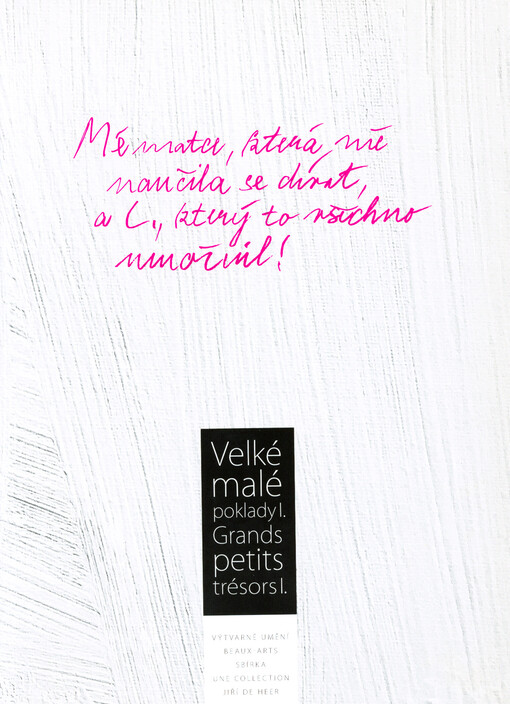 Mé matce, která mě
naučila se dívat,
a C., který to všechno
umožnil!
Velké
malé
poklady I.
Grands
petits
trésors I.
VÝTVARNÉ UMĚNÍ
BEAUX-ARTS
SBÍRKA
UNE COLLECTION
JIŘÍ DE HEER